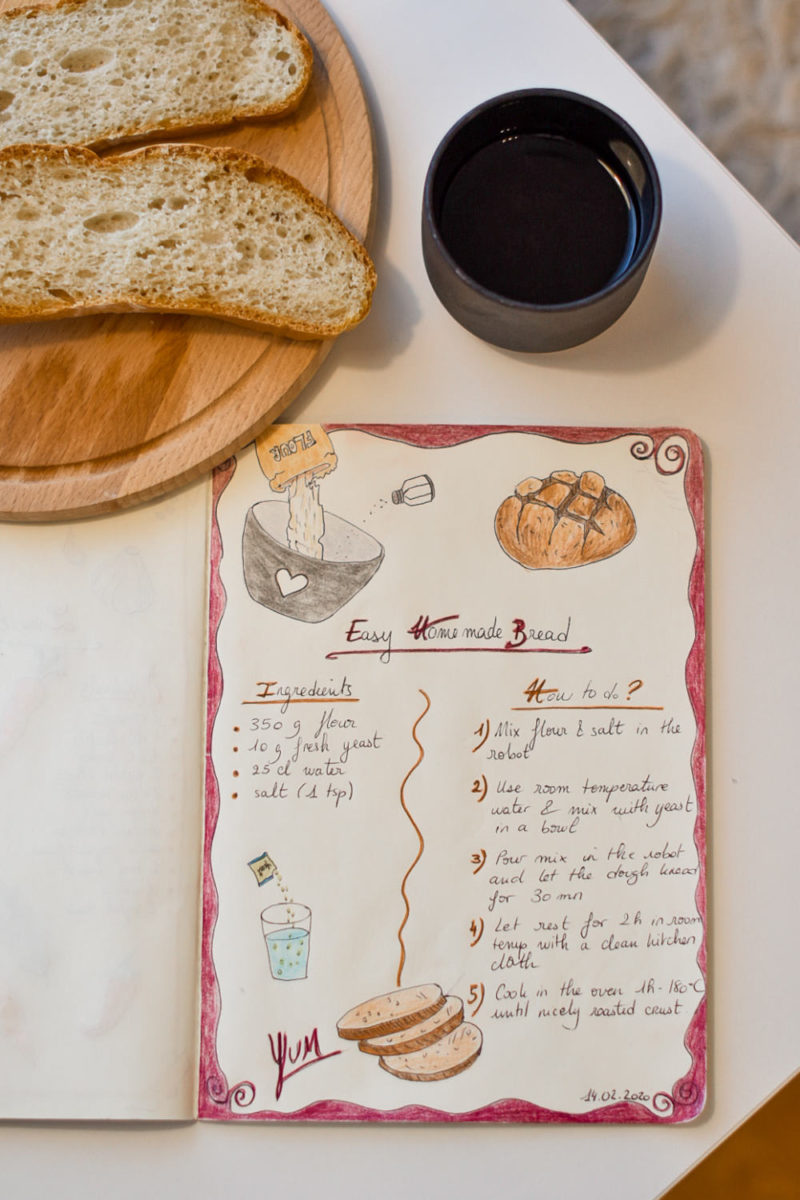 FLOUR
Easy Homemade Bread
Ingredients
350 g flour
10 g fresh yeast
25 cl water
salt (1 tsp)
How to do?
1) Mix flour & salt in the
robot
2) Use room temperature
water & mix with yeast
in a bowl
3) Pour mix in the robot
and let the dough knead
for 30 mn
4) Let rest for 2h in room
temp with a clean kitchen
cloth
5) Cook in the oven 1h - 180°C
until nicely roasted crust
YUM
14.02.2020